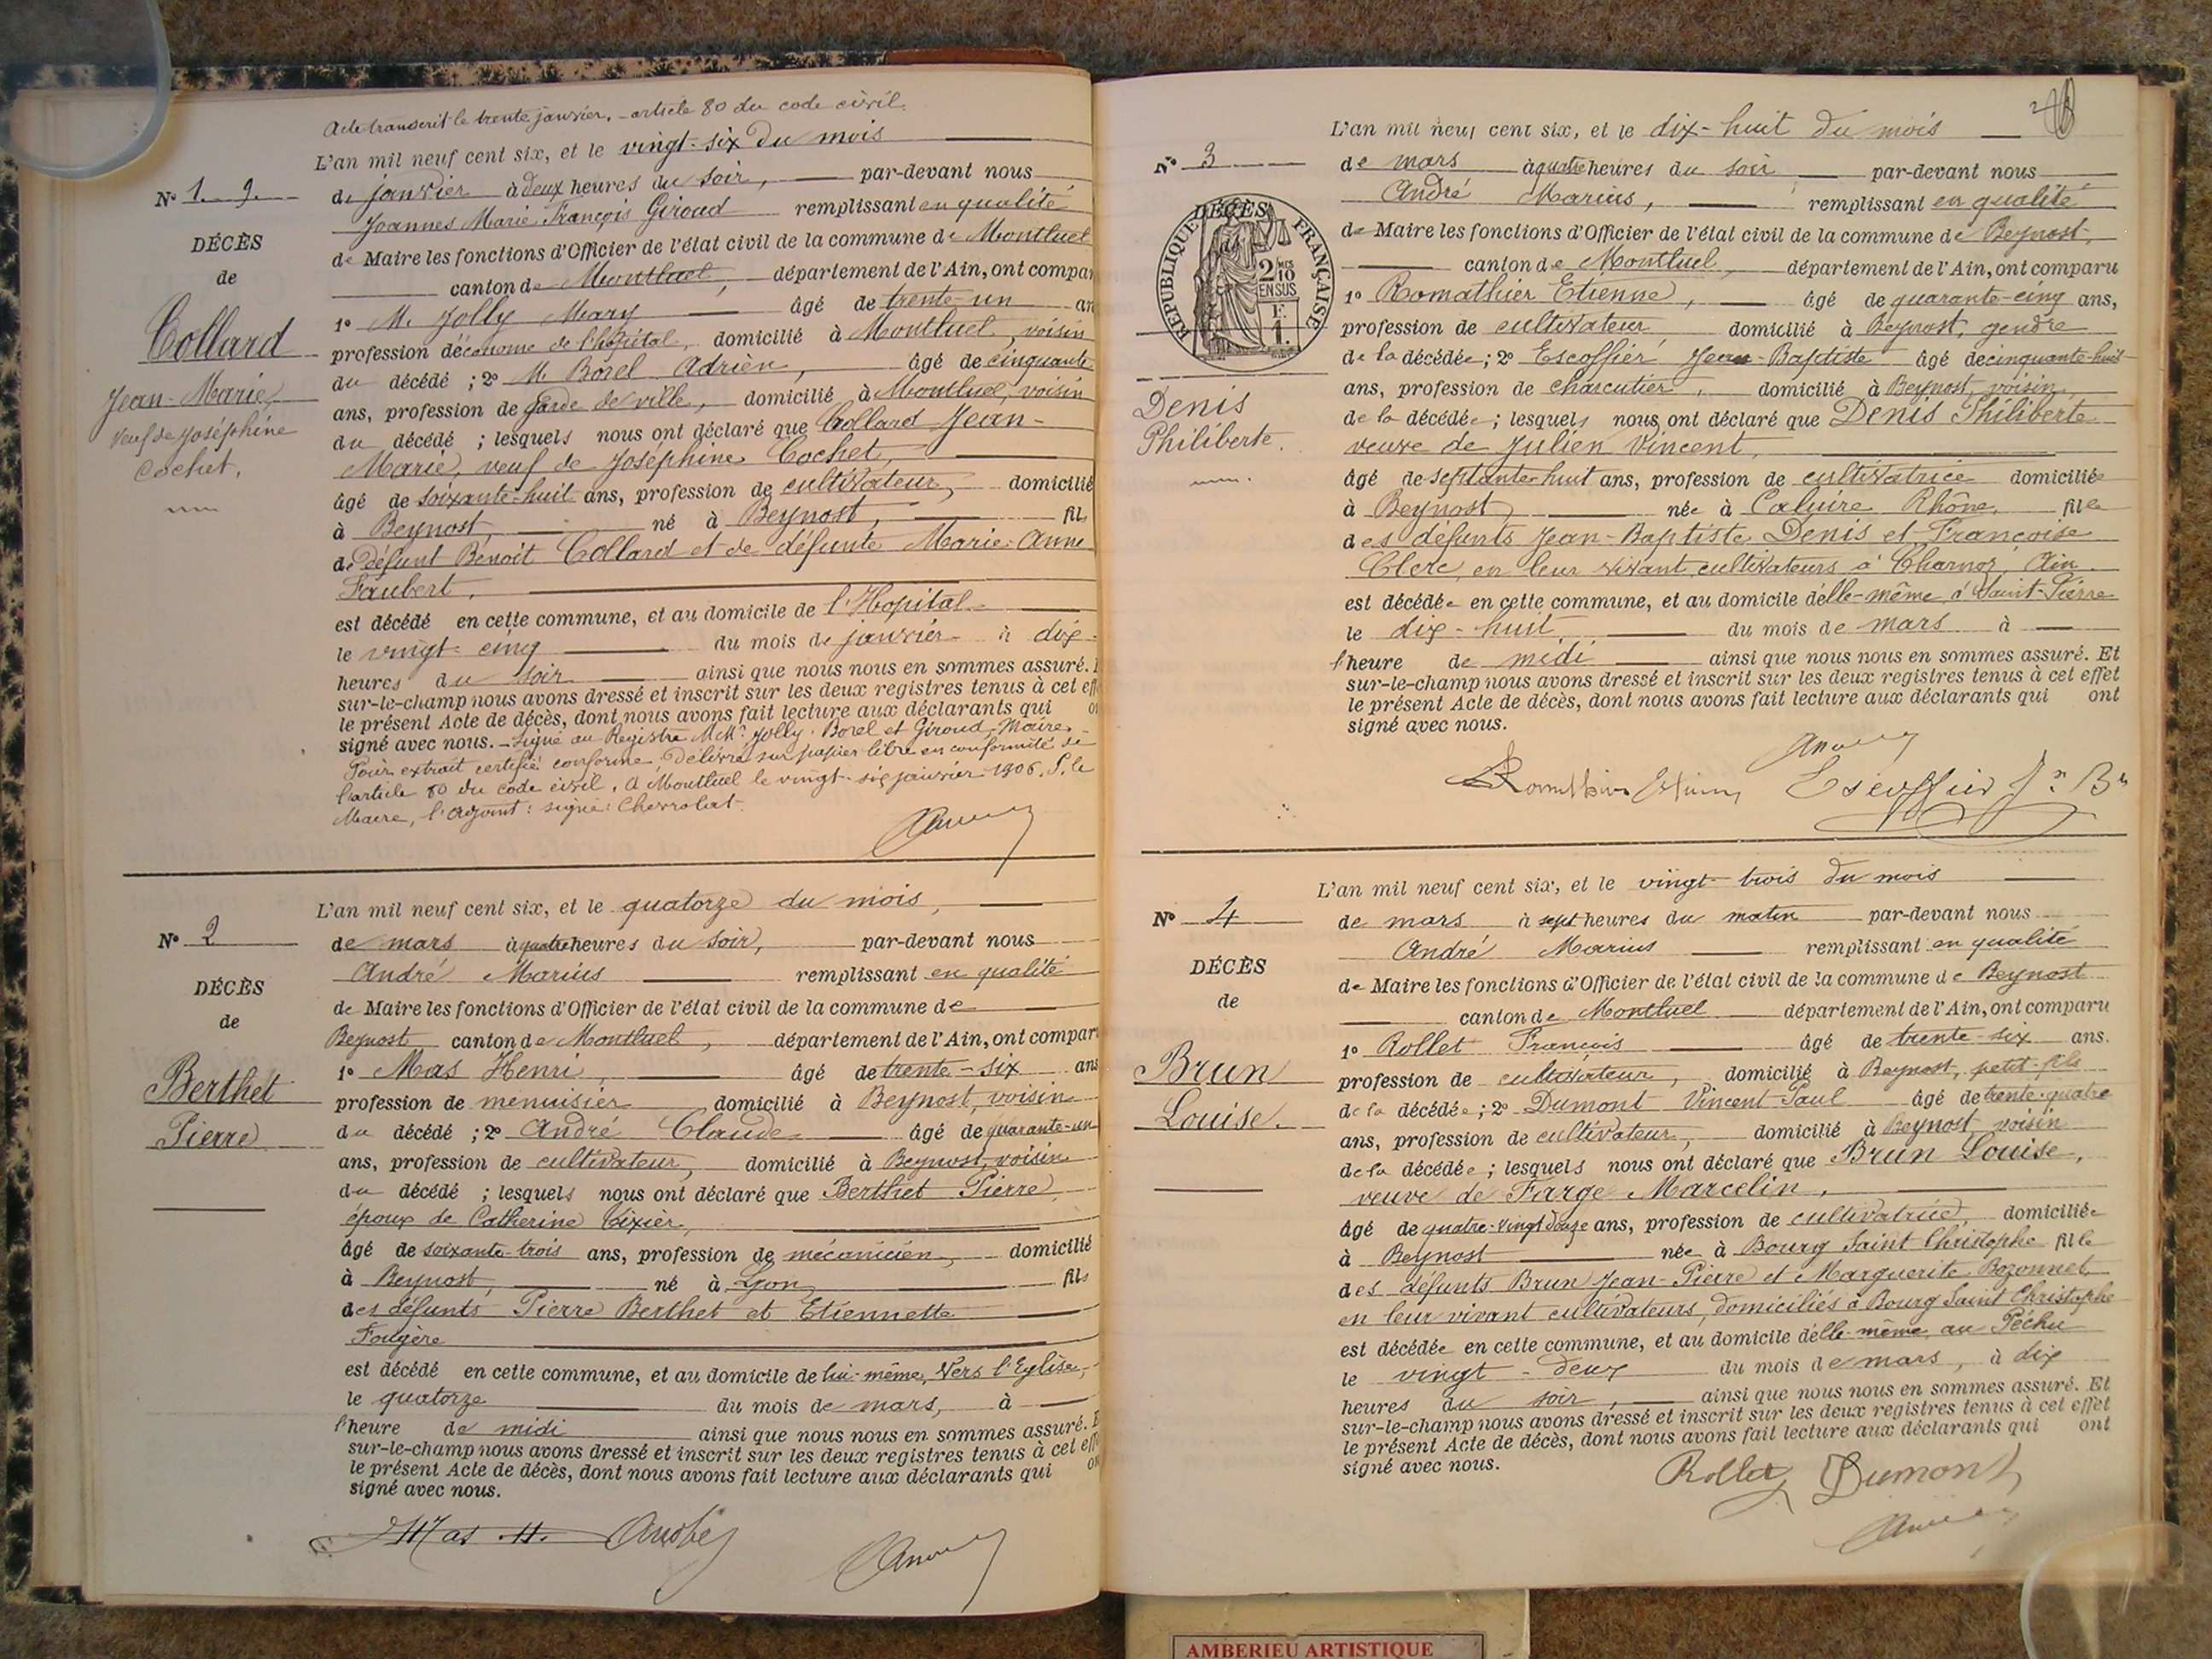 Acte transcrit le trente janvier. – article 80 du code civil.
L'an mil neuf cent six, et le vingt-six du mois
N° 1. 9.
de janvier à deux heures du soir, par-devant nous
Joannes Marie François Giroud remplissant en qualité
DÉCÈS
de Maire les fonctions d'Officier de l'état civil de la commune de Montluel
de
canton de Montluel, département de l'Ain, ont compar
1° M. Jolly Mary âgé de trente-un an
Collard
profession d'économe de l'hôpital, domicilié à Montluel, voisin
du décédé ; 2° M. Borel Adrien, âgé de cinquante
Jean-Marie
ans, profession de garde de ville, domicilié à Montluel, voisin
veuf de Joséphine
du décédé ; lesquels nous ont déclaré que Collard Jean-
Cochet.
Marie, veuf de Joséphine Cochet,
âgé de soixante-huit ans, profession de cultivateur, domicilié
à Beynost, né à Beynost, fils
de défunt Benoit Collard et de défunte Marie-Anne
Faubert.
est décédé en cette commune, et au domicile de l'Hopital
le vingt-cinq du mois de janvier à dix
heures du soir ainsi que nous nous en sommes assuré. E
sur-le-champ nous avons dressé et inscrit sur les deux registres tenus à cet eff
le présent Acte de décès, dont nous avons fait lecture aux déclarants qui on
signé avec nous. – Signé au Registre MM. Jolly, Borel et Giroud, Maire.
Pour extrait certifié conforme, délivré sur papier libre en conformité de
l'article 80 du code civil. A Montluel le vingt-six janvier 1906. P. le
Maire, l'adjoint : signé :
L'an mil neuf cent six, et le quatorze du mois,
N° 2
de mars à quatre heures du soir, par-devant nous
André Marius remplissant en qualité
DÉCÈS
de Maire les fonctions d'Officier de l'état civil de la commune de
de
Beynost canton de Montluel, département de l'Ain, ont compar
1° Mas Henri, âgé de trente-six ans
Berthet
profession de menuisier domicilié à Beynost, voisin
Pierre
du décédé ; 2° André Claude âgé de quarante-un
ans, profession de cultivateur, domicilié à Beynost, voisin
du décédé ; lesquels nous ont déclaré que Berthet Pierre,
époux de Catherine Vixier,
âgé de soixante-trois ans, profession de mécanicien, domicilié
à Beynost, né à Lyon, fils
des défunts Pierre Berthet et Etiennette
Fougère
est décédé en cette commune, et au domicile de lui-même, Vers l'Eglise,
le quatorze du mois de mars, à
l'heure de midi ainsi que nous nous en sommes assuré. E
sur-le-champ nous avons dressé et inscrit sur les deux registres tenus à cet eff
le présent Acte de décès, dont nous avons fait lecture aux déclarants qui on
signé avec nous.
Mas H. André
L'an mil neuf cent six, et le dix-huit du mois
N° 3
de mars à quatre heures du soir par-devant nous
André Marius, remplissant en qualité
DÉCÈS
RÉPUBLIQUE FRANÇAISE
2 MES 10 EN SUS
F. 1.
de Maire les fonctions d'Officier de l'état civil de la commune de Beynost,
canton de Montluel, département de l'Ain, ont comparu
1° Romathier Etienne, âgé de quarante-cinq ans,
profession de cultivateur domicilié à Beynost, gendre
de la décédée ; 2° Escoffier Jean-Baptiste âgé de cinquante-huit
ans, profession de charcutier, domicilié à Beynost, voisin,
Denis
de la décédée ; lesquels nous ont déclaré que Denis Philiberte
Philiberte.
veuve de Julien Vincent,
âgé de septante-huit ans, profession de cultivatrice domiciliée
à Beynost, née à Caluire Rhône, fille
des défunts Jean-Baptiste Denis et Françoise
Clerc, en leur vivant cultivateurs à Charnoz, Ain.
est décédée en cette commune, et au domicile d'elle-même, à Saint-Pierre
le dix-huit, du mois de mars à
l'heure de midi ainsi que nous nous en sommes assuré. Et
sur-le-champ nous avons dressé et inscrit sur les deux registres tenus à cet effet
le présent Acte de décès, dont nous avons fait lecture aux déclarants qui ont
signé avec nous.
Romathier Etienne Escoffier J. Bte
L'an mil neuf cent six, et le vingt-trois du mois
N° 4
de mars à sept heures du matin par-devant nous
André Marius remplissant en qualité
DÉCÈS
de Maire les fonctions d'Officier de l'état civil de la commune de Beynost
de
canton de Montluel département de l'Ain, ont comparu
1° Rollet François âgé de trente-six ans.
Brun
profession de cultivateur, domicilié à Beynost, petit-fils
Louise.
de la décédée ; 2° Dumont Vincent Paul âgé de trente-quatre
ans, profession de cultivateur, domicilié à Beynost, voisin
de la décédée ; lesquels nous ont déclaré que Brun Louise,
veuve de Farge Marcelin,
âgé de quatre-vingt douze ans, profession de cultivatrice, domiciliée
à Beynost née à Bourg Saint Christophe fille
des défunts Brun Jean-Pierre et Marguerite Bozonnet
en leur vivant cultivateurs, domiciliés à Bourg Saint Christophe
est décédée en cette commune, et au domicile d'elle-même, au Péchu
le vingt-deux du mois de mars, à dix
heures du soir, ainsi que nous nous en sommes assuré. Et
sur-le-champ nous avons dressé et inscrit sur les deux registres tenus à cet effet
le présent Acte de décès, dont nous avons fait lecture aux déclarants qui ont
signé avec nous.
Rollet Dumont
AMBERIEU ARTISTIQUE